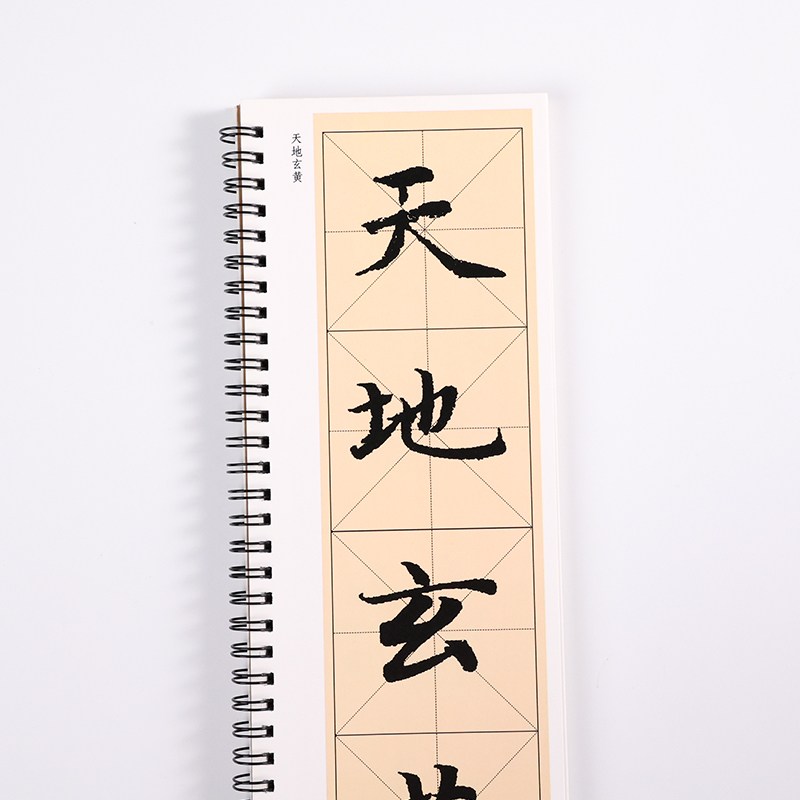 天地玄黄
天地玄